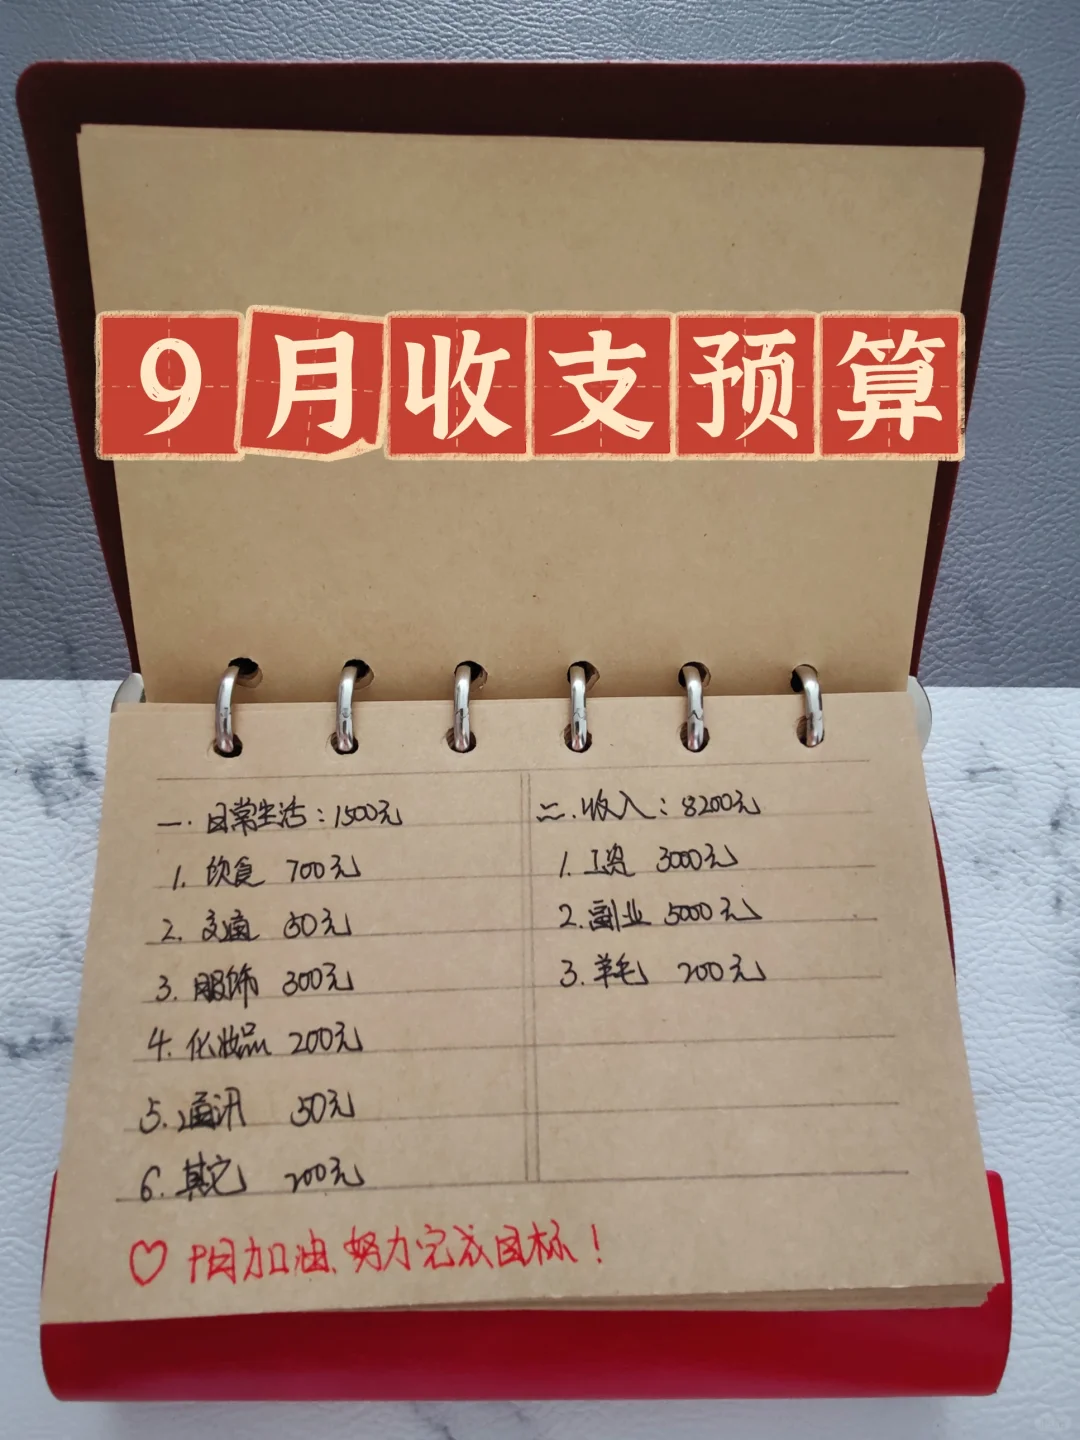 9月收支预算
一.日常生活:1500元
1.饮食 700元
2.交通 50元
3.服饰 300元
4.化妆品 200元
5.通讯 50元
6.其它 200元
二.收入:8200元
1.工资 3000元
2.副业 5000元
3.羊毛 200元
♡ 加油、努力完成目标!